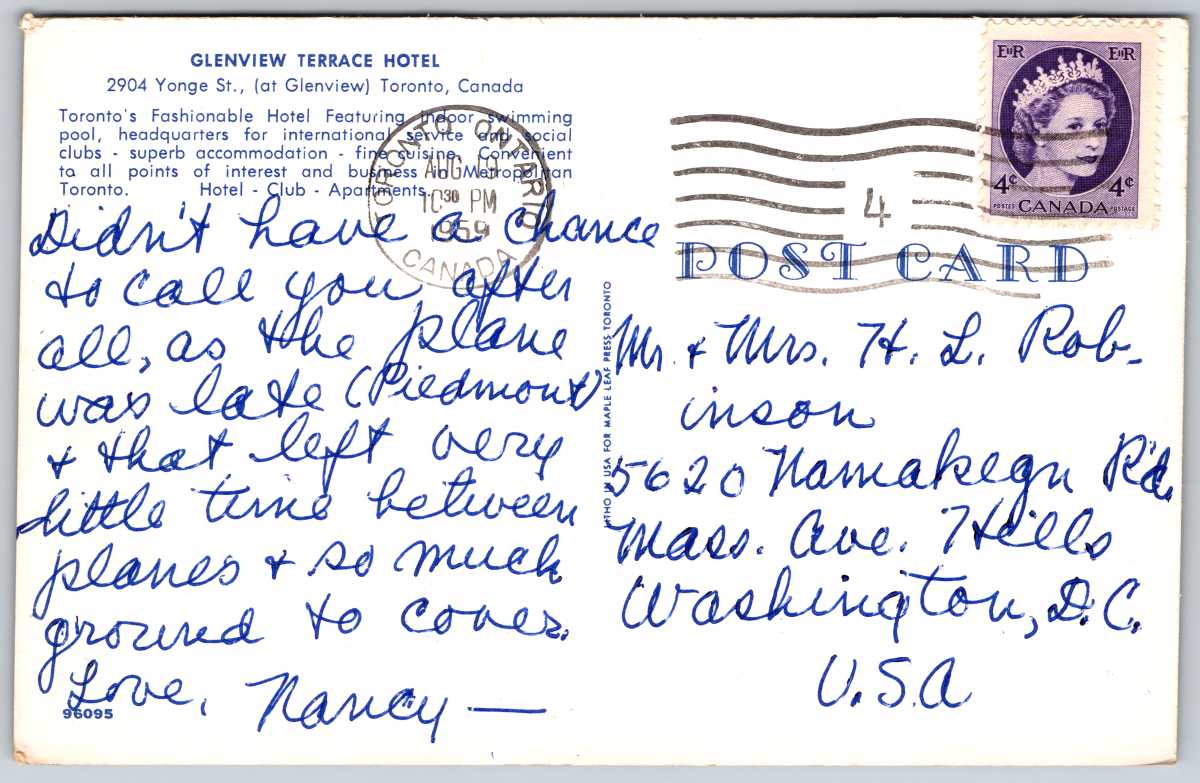 GLENVIEW TERRACE HOTEL
2904 Yonge St., (at Glenview) Toronto, Canada
Toronto's Fashionable Hotel Featuring indoor swimming
pool, headquarters for international service and social
clubs - superb accommodation - fine cuisine. Convenient
to all points of interest and business in Metropolitan
Toronto. Hotel - Club - Apartments.
TORONTO ONTARIO
AUG 19
10 30 PM
1959
CANADA
4
EIIR EIIR
4¢ 4¢
POSTES CANADA POSTAGE
POST CARD
Didn't have a chance
to call you after
all, as the plane
was late (Piedmont)
& that left very
little time between
planes & so much
ground to cover.
Love, Nancy —
96095
LITHO IN USA FOR MAPLE LEAF PRESS TORONTO
Mr. & Mrs. H. L. Rob-
inson
5620 Namakegn Rd.
Mass. Ave. Hills
Washington, D.C.
U.S.A